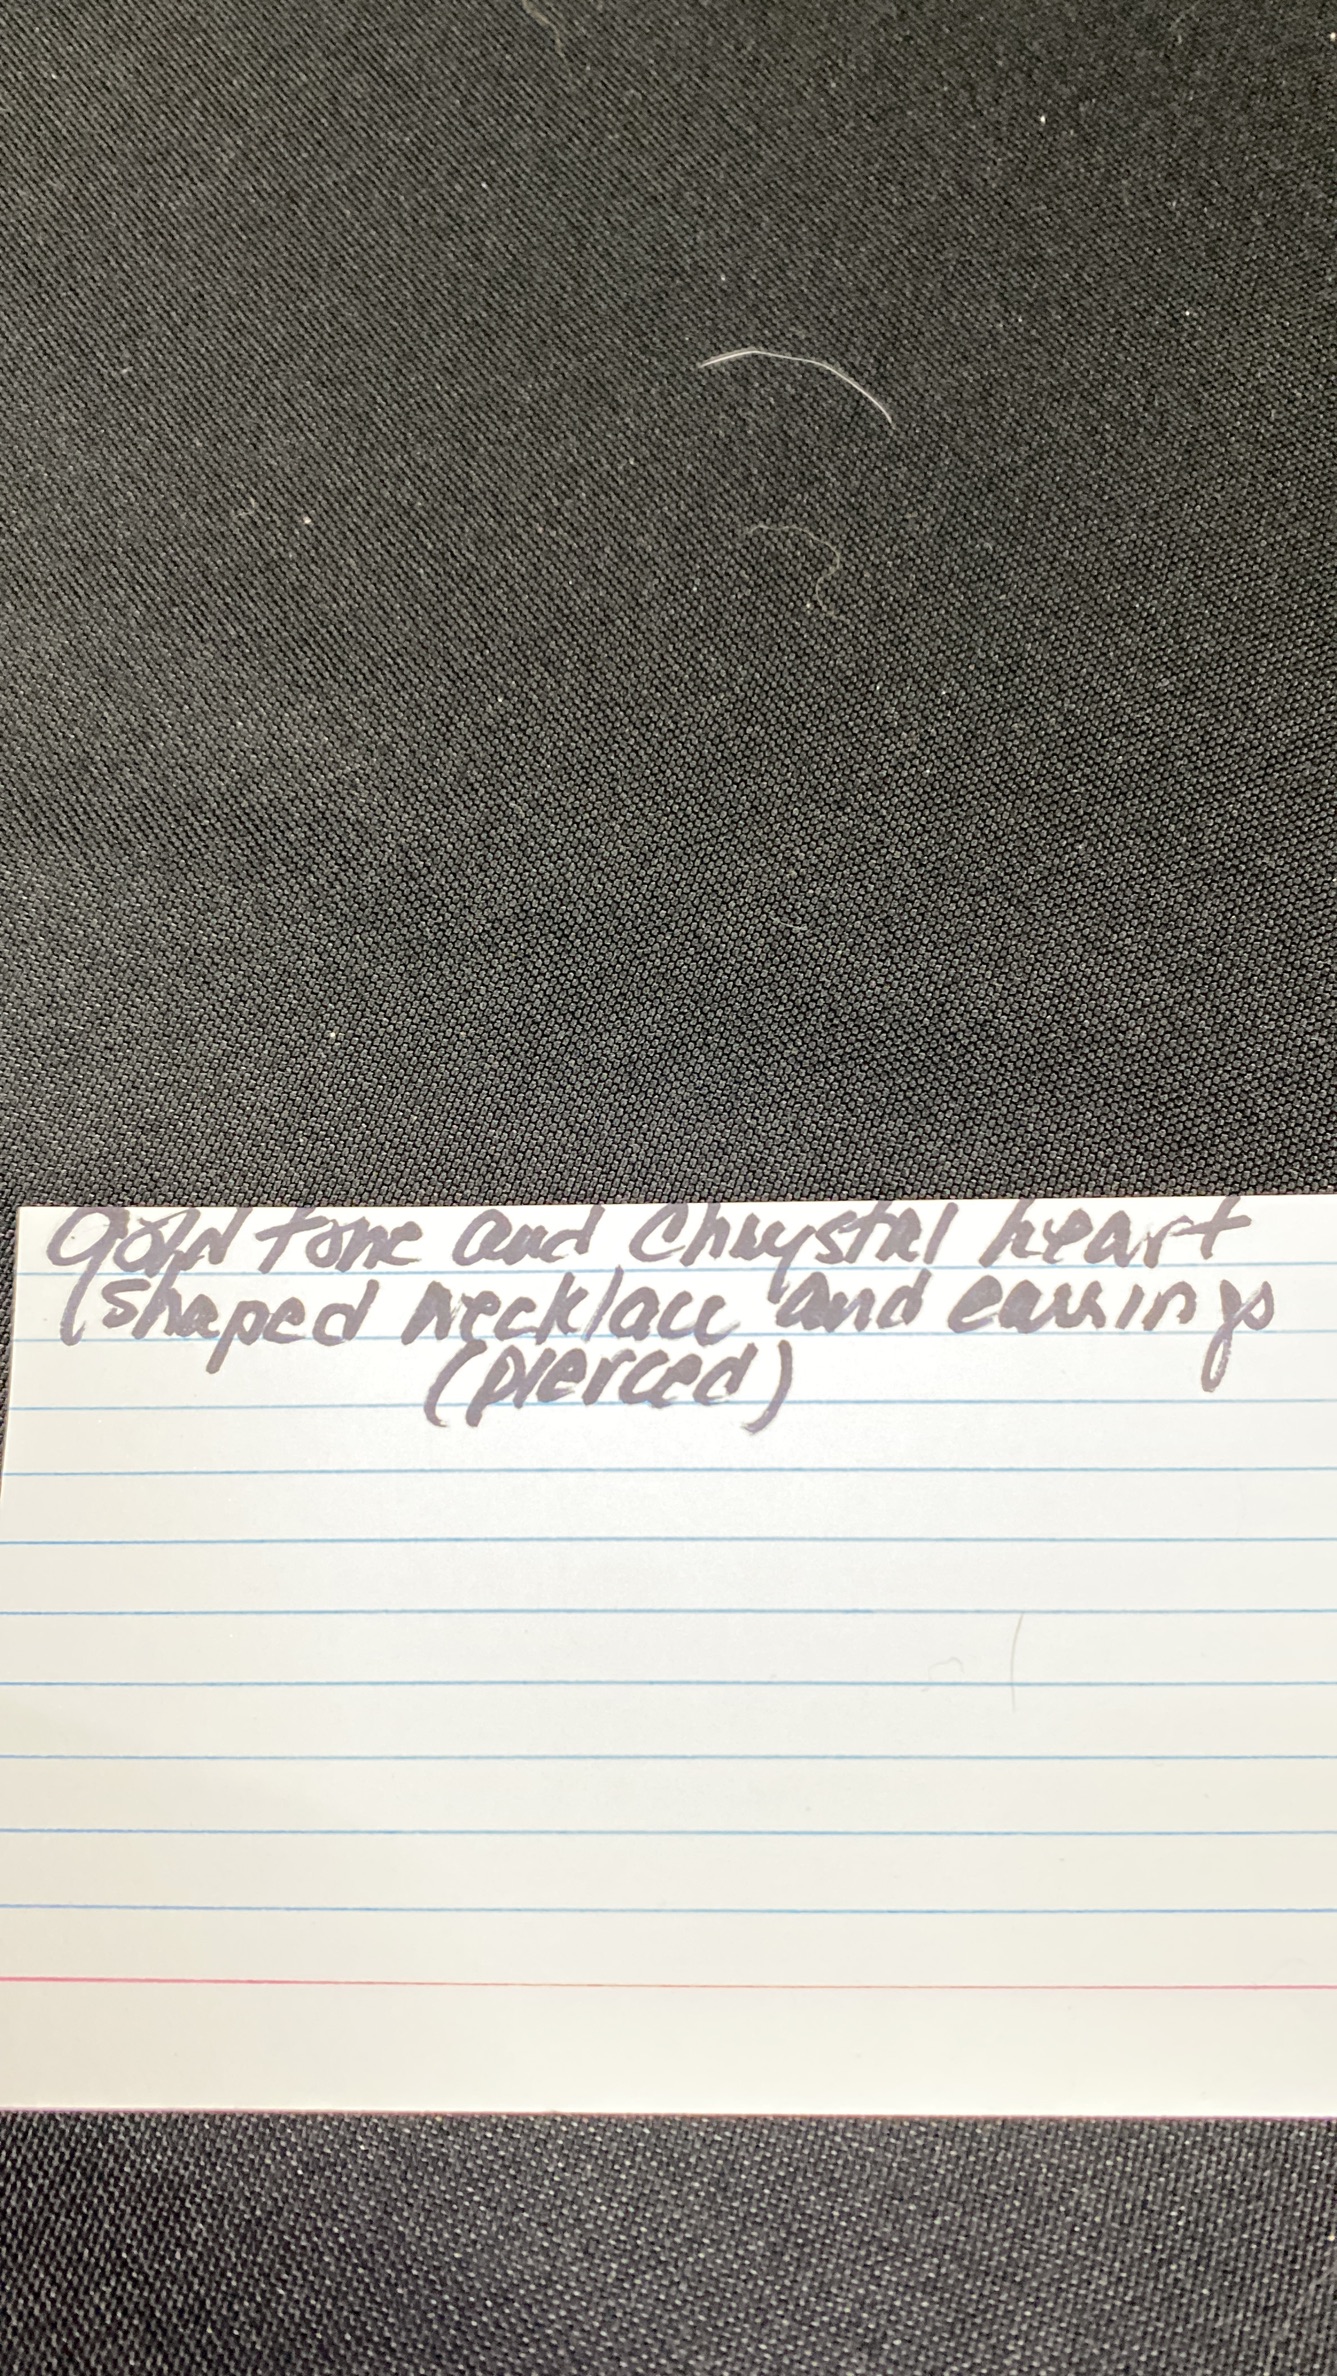 Gold tone and Chrystal heart
shaped necklace and earrings
(pierced)